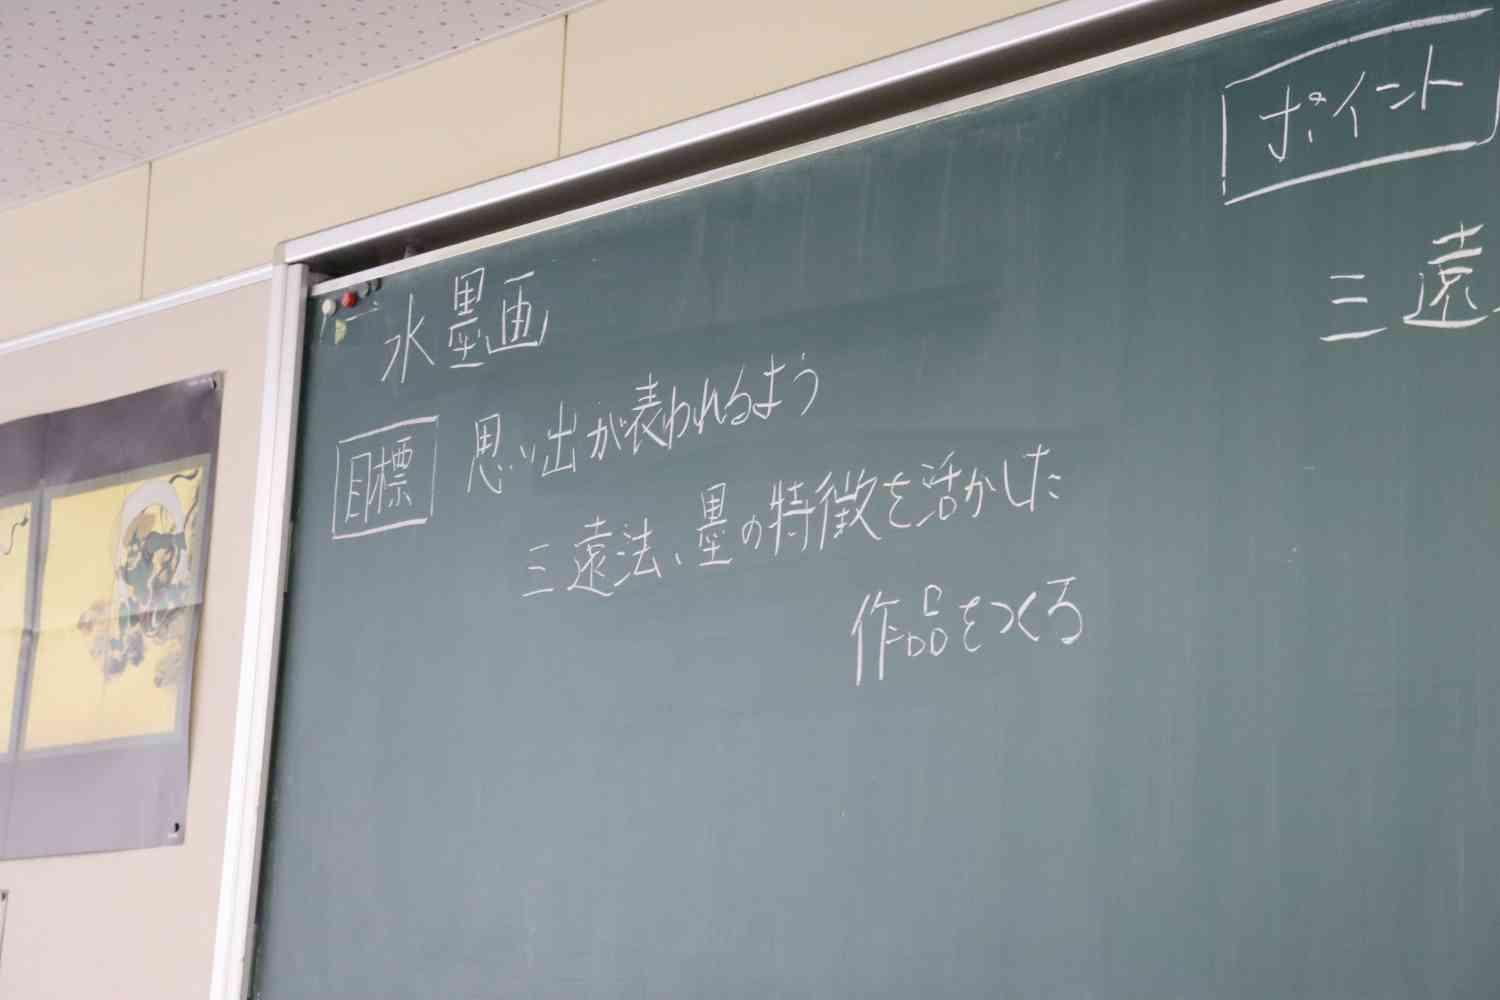 水墨画
目標 思い出が表われるよう
三遠法、墨の特徴を活かした
作品をつくろう
ポイント
三遠